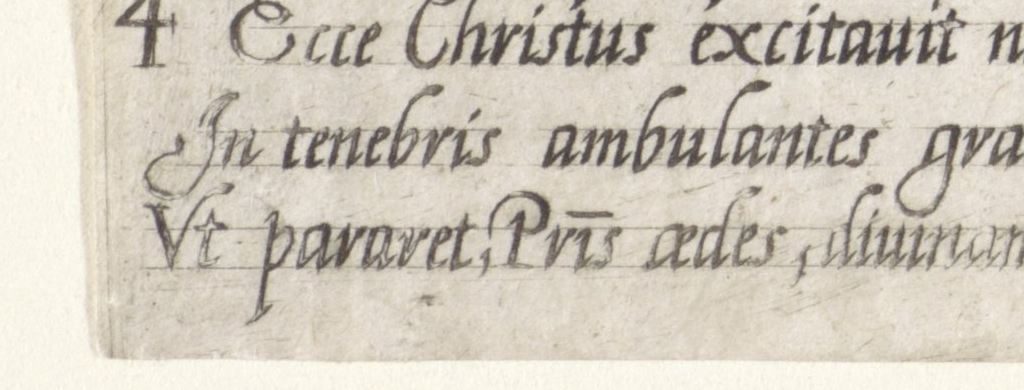 4 Ecce Christus excitauit
In tenebris ambulantes gra
Vt pararet, Pris̄ ædes, diuinam